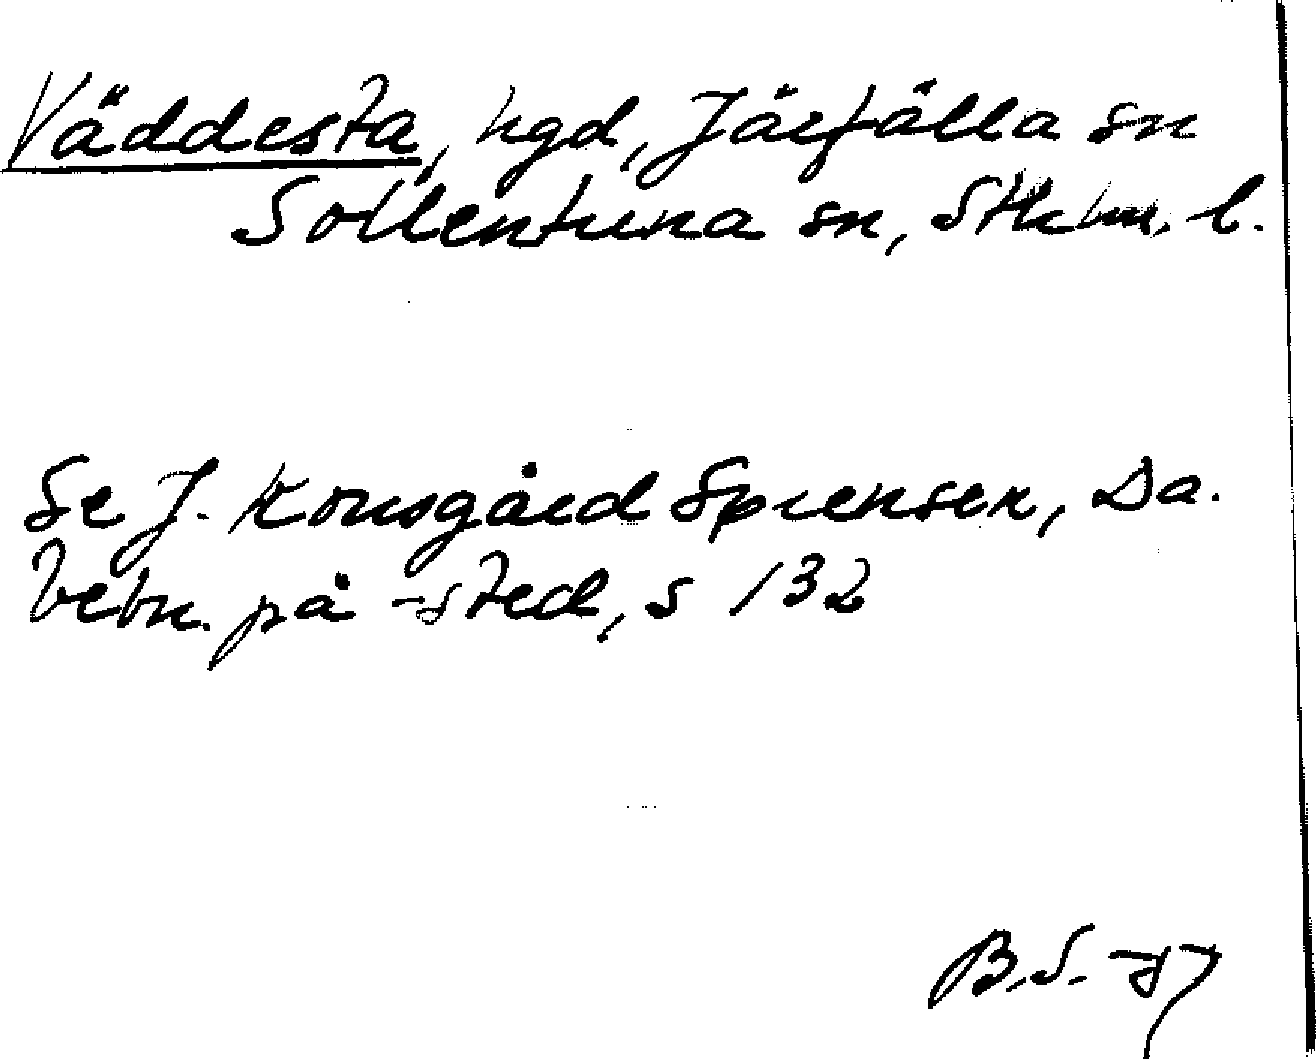 Väddesta, hgd, Järfälla sn
Sollentuna sn, Sthlm. l.
Se J. Kousgård Sørensen, Da.
bebn. på -sted, s 132
B.S. -57